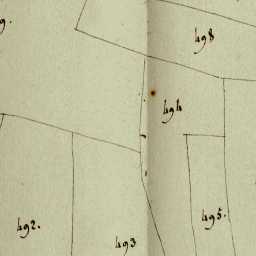 498
494
492.
493
495.